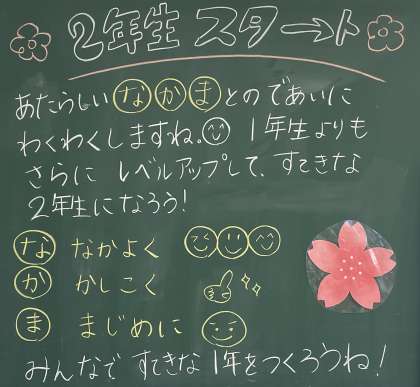 2年生 スタート
あたらしい なかま とのであいに
わくわくしますね。 1年生よりも
さらに レベルアップして、すてきな
2年生になろう!
な なかよく
か かしこく
ま まじめに
みんなで すてきな 1年をつくろうね!